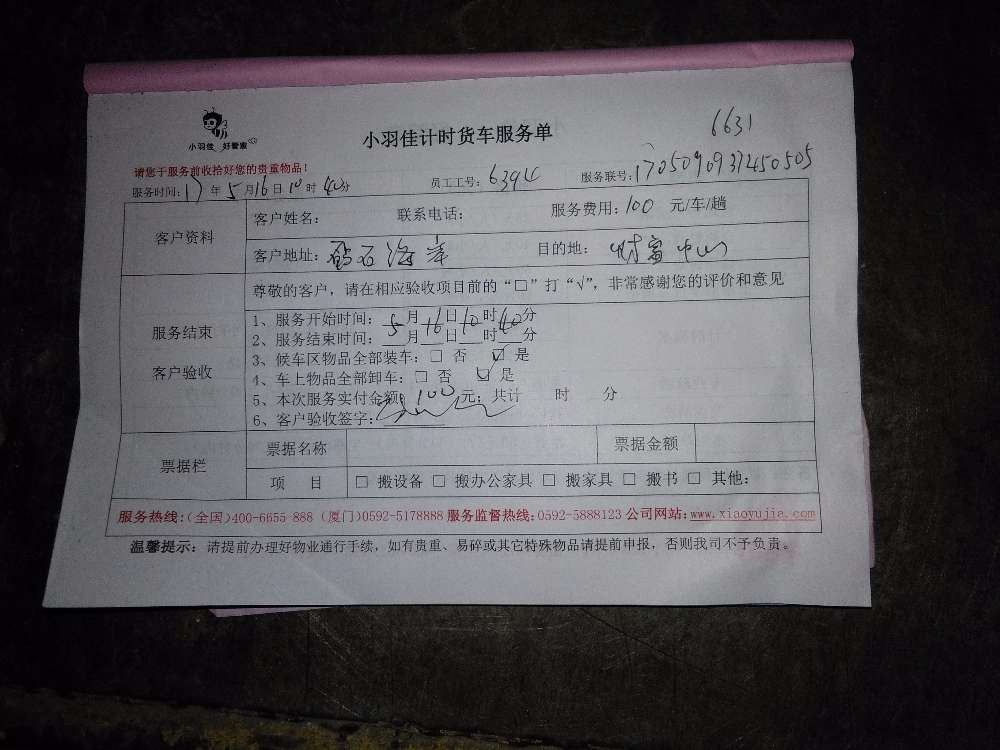 6631
小羽佳 好管家
小羽佳计时货车服务单
请您于服务前收拾好您的贵重物品！
服务时间：17年5月16日10时40分 员工工号：6394 服务联号：
客户资料
客户姓名： 联系电话： 服务费用：100 元/车/趟
客户地址：钻石海岸 目的地：财富中心
尊敬的客户，请在相应验收项目前的“□”打“√”，非常感谢您的评价和意见
服务结束
客户验收
1、服务开始时间：5月16日10时40分
2、服务结束时间：__月__日__时__分
3、候车区物品全部装车：□ 否 ☑ 是
4、车上物品全部卸车：□ 否 ☑ 是
5、本次服务实付金额：100元；共计 时 分
6、客户验收签字：
票据栏
票据名称 票据金额
项 目 □ 搬设备 □ 搬办公家具 □ 搬家具 □ 搬书 □ 其他：
服务热线：(全国)400-6655-888 (厦门)0592-5178888 服务监督热线：0592-5888123 公司网站：www.xiaoyujia.com
温馨提示：请提前办理好物业通行手续，如有贵重、易碎或其它特殊物品请提前申报，否则我司不予负责。